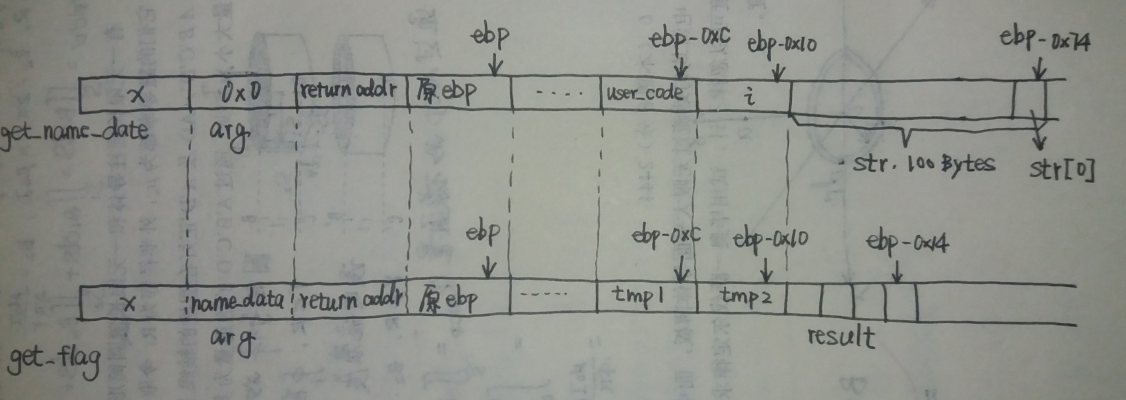 ebp ebp-0xC ebp-0x10 ebp-0x74
x 0x0 return addr 原ebp ..... user_code i
get_name_date arg
str. 100 Bytes str[0]
ebp ebp-0xC ebp-0x10 ebp-0x14
x name_data return addr 原ebp ..... tmp1 tmp2
arg result
get_flag